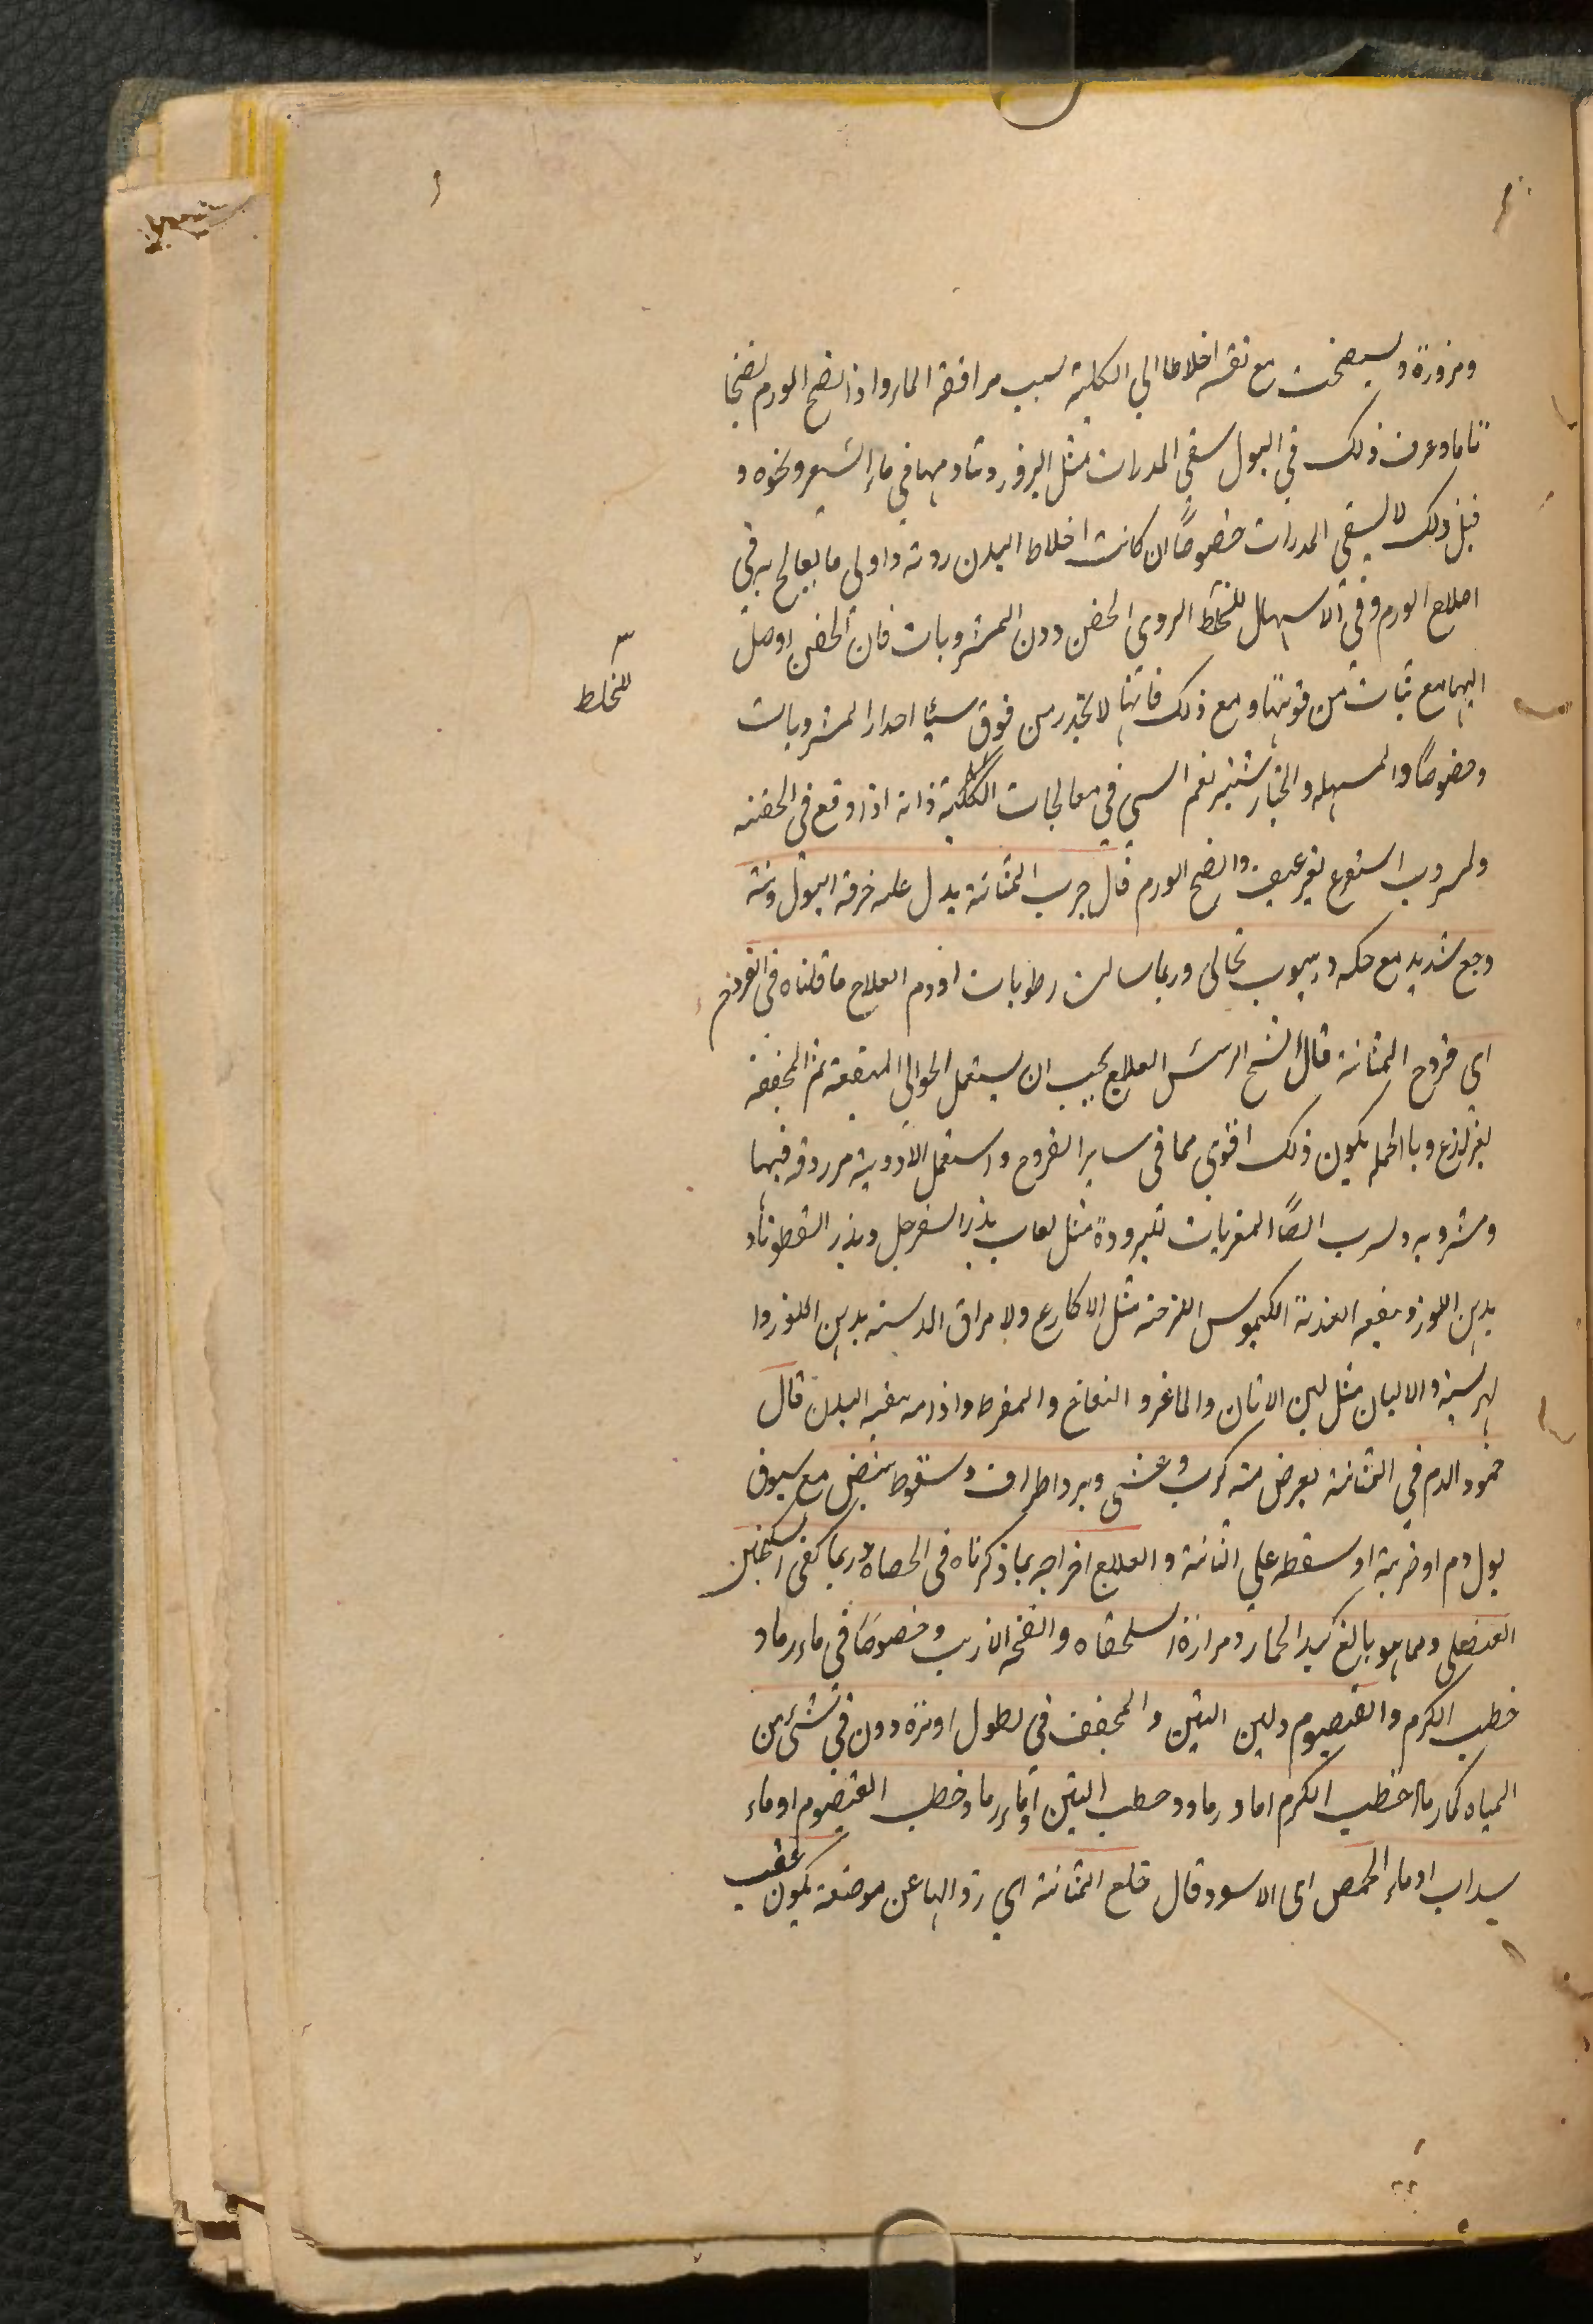 ومزورة و مع نفسه اخلاطا الي الكلية بسبب مرافقة الماء واذا نضج الورم نضجا
تاما وعرف ذلك في البول سقي المدرات مثل البزور وتادمها في ماء الشعير ونحوه و
قبل ذلك لا يسقي المدرات خصوصًا ان كانت اخلاط البدن ردية واولى ما يعالج به في
اصلاح الورم وفي الاسهال للخلط الردي الحقن دون المشروبات فان الحقن اوصل
للخلط
اليها مع ثبات من قوتها ومع ذلك فانها لا تحدر من فوق سيا احدار المشروبات
وخصوصًا والمسهله والخيار شنبر نعم السي في معالجات الكلية فانه اذا وقع في الحقنه
والمشروب استفرغ بغير عنيف وانضج الورم قال جرب المثانة يدل عليه حرقة البول ونتنه
وجع شديد مع حكه ورسوب نخالي وربما سالت رطوبات او دم العلاج ما قلناه في القروح
اي قروح المثانة قال الشيخ الرئيس العلاج يجب ان يستعمل الحوالي المنقعة ثم المجففه
بغير لذع وبالجمله يكون ذلك اقوي مما في ساير القروح واستعمل الادوية مزروقه فيها
ومشروبه ولشرب ايضًا المغريات تكبرودة مثل لعاب بذر السفرجل وبذر القطونا و
بدهن اللوز وينفعه اغذية الكيموس اللزجه مثل الاكارع ولا مراق الدسمه بدهن اللوز وا
لهرسية والالبان مثل لبن الاتان والماغر و النعاج والمفرط واذا مه بنفيه البدن قال
جمود الدم في المثانة يعرض منه كرب وغشي وبرد اطراف وسقوط نبض مع سبوق
بول دم او ضربة او سقطه علي المثانة والعلاج اخراجه بما ذكرناه في الحصاة وربما كفى السكنجبين
العنصلي ومما هو بالغ كبد الحمار ومرارة السلحفاه وانفحه الارنب وخصوصًا في ماء رماد
حطب الكرم والقيصوم ولبن التين والمجفف في لطول او نزه دون في شئ من
المياه كماء رماد حطب الكرم اماد رماد وحطب التين او ماء رماد حطب القيصوم او ماء
سداب او ماء الحمص اى الاسود قال خلع المثانة اي زوالها عن موضعه يكون عقيب